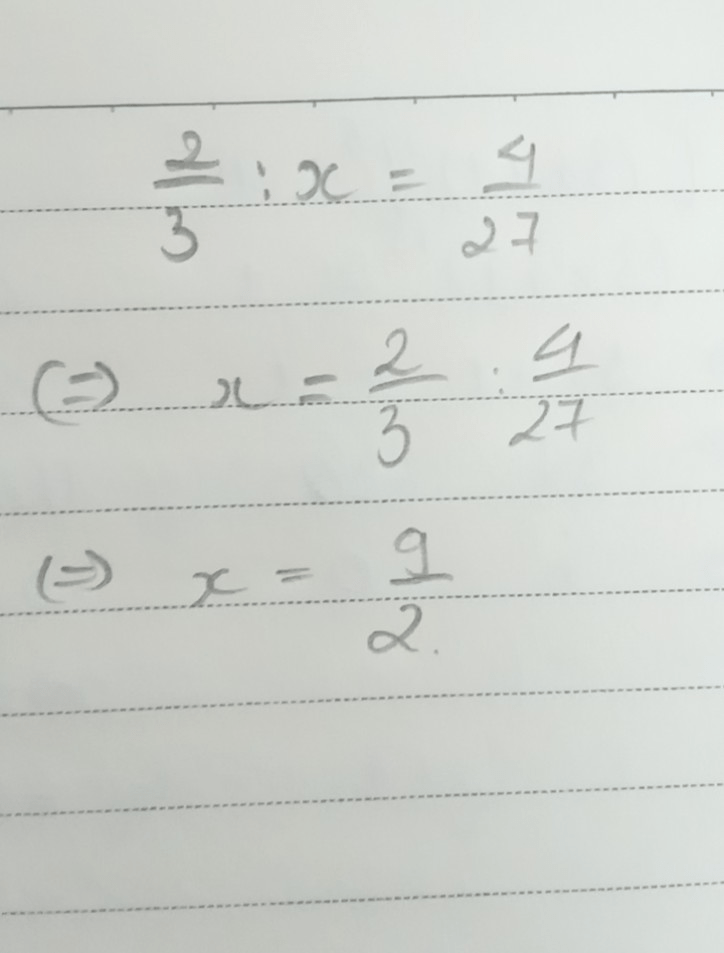 2/3 : x = 4/27
(=) x = 2/3 : 4/27
(=) x = 9/2.